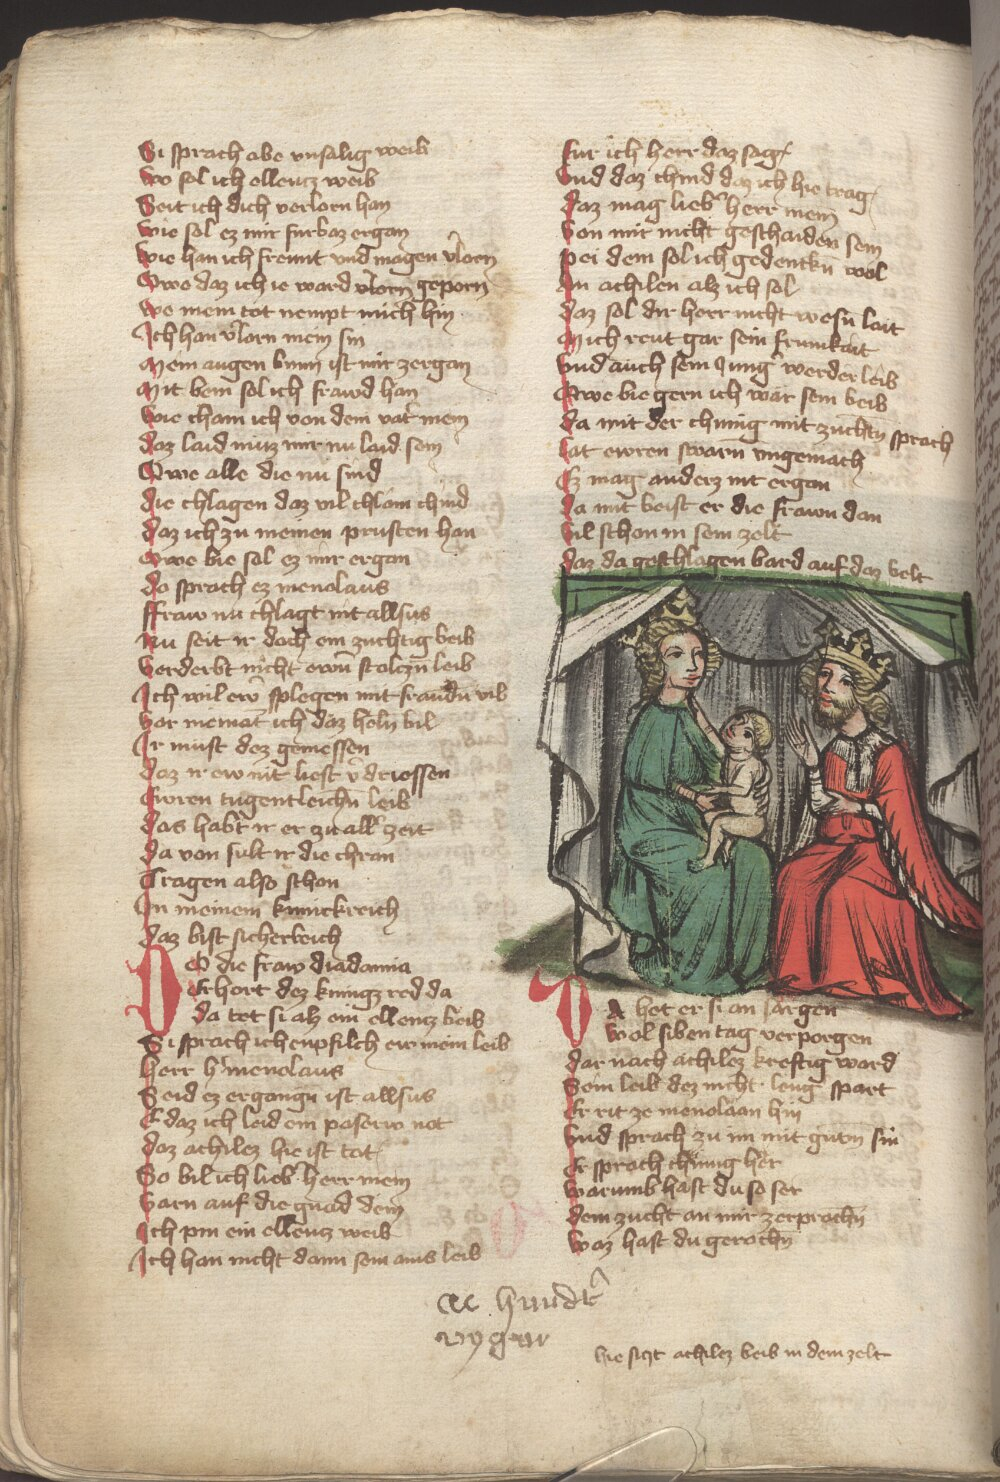 Si sprach abe vnsalig weib
wo sol ich ellencz weib
Seit ich dich verlorn han
wie sol ez mir furbaz ergan
wie han ich freunt vnd magen vlorn
Owe daz ich ie ward vlorn geporn
we mein tot nempt mich hin
Ich han vlorn mein sin
Mein augen brinn ist mir zergan
Mit bem sol ich frawd han
wie cham ich von dem vater mein
daz laid muz mir nu laid sein
Owe alle die nu sind
die chlagen daz vil chlain chind
daz ich zu meinen prusten han
Owe bie sol ez mir ergan
do sprach ez menolaus
ffraw nu chlagt nit allsus
Nu seit ir doch ein zuchtig beib
verderbt nicht ewrn stolczn leib
Ich wil ewr pflegen mit frawdn vil
bar meinat ich daz heln bil
Ir must dez geniessen
daz ir ew nit liest vdriessen
Ewren tugentleichn leib
das habt ir er zu aller zeit
da von sult ir die chran
Tragen also schon
In meinem kunickreich
daz bist sicherleich
DO die fraw diadamia
Erhort dez kunigz red da
da tet si alz ein ellencz beib
Si sprach ich enpfilch ew mein leib
herr her menolaus
Seid ez ergangn ist allsus
E daz ich leid ein poserw not
daz achilez hie ist tot
So bil ich lieber herr mein
varn auf die gnad dein
Ich pin ein ellencz weib
Ich han nicht dann sein ains leib
fur ich herr daz sag
vnd daz chind daz ich hie trag
daz mag lieber herr mein
von mir nicht geschaiden sein
pei dem sol ich gedenckn wol
An achilen alz ich sol
daz sol dir herr nicht wesn lait
Mich reut gar sein frumkait
vnd auch sein Jung werder leib
Owe bie gern ich wär sein beib
da mit der chunig mit zuchtn sprach
lat ewren swarn vngemach
Ez mag anderz nit ergan
da mit beist er die frawn dan
vil schon in sein zelt
daz da geschlagen bard auf daz velt
DA het er si an sargen
wol siben tag verporgen
dar nach achilez kreftig ward
Sein leib dez nicht leng spart
Er rit ze menolaan hin
vnd sprach zu im mit gutem sin
Er sprach chunig her
warumb hast du so ser
dein zucht an mir zerprochn
waz hast du gerochn
hie siczt achilez beib in dem zelt